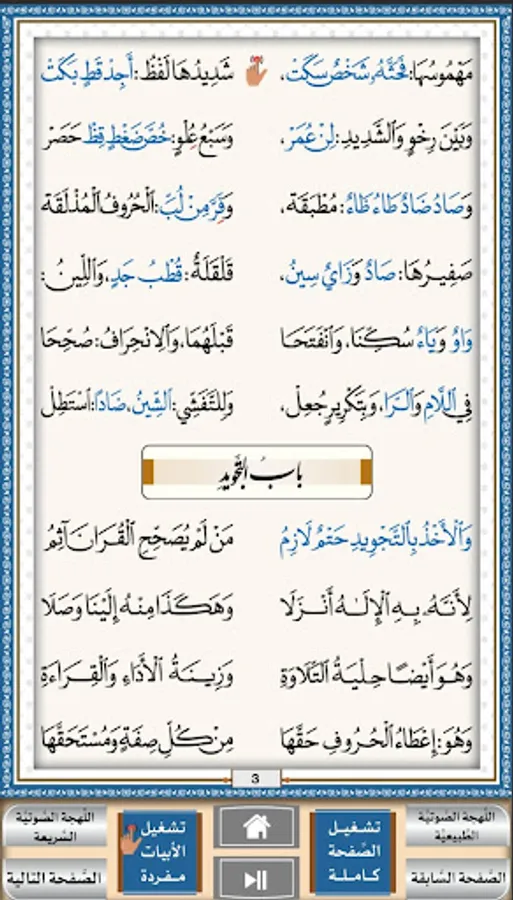 مَهْمُوسُهَا: فَحَثَّهُ شَخْصٌ سَكَتَ، شَدِيدُهَا لَفْظُ: أَجِدْ قَطٍ بَكَتْ
وَبَيْنَ رِخْوٍ وَالشَّدِيدِ: لِنْ عُمَرْ، وَسَبْعُ عُلْوٍ: خُصَّ ضَغْطٍ قِظْ حَصَرْ
وَصَادُ ضَادٌ طَاءُ ظَاءٌ: مُطْبَقَة، وَفِرَّ مِنْ لُبِّ: الْحُرُوفُ الْمُذْلَقَة
صَفِيرُهَا: صَادٌ وَزَايٌ سِينُ، قَلْقَلَةٌ: قُطْبُ جَدٍ، وَاللِّينُ:
وَاوٌ وَيَاءٌ سُكِّنَا، وَانْفَتَحَا قَبْلَهُمَا، وَالِانْحِرَافُ: صُحِّحَا
فِي اللَّامِ وَالرَّا، وَبِتَكْرِيرٍ جُعِلْ، وَلِلتَّفَشِّي: الشِّينُ، ضَادًا: اسْتَطِلْ
بَابُ التَّجْوِيدِ
وَالْأَخْذُ بِالتَّجْوِيدِ حَتْمٌ لَازِمُ مَنْ لَمْ يُصَحِّحِ الْقُرَانَ آثِمُ
لِأَنَّهُ بِهِ الْإِلَهُ أَنْزَلَا وَهَكَذَا مِنْهُ إِلَيْنَا وَصَلَا
وَهُوَ أَيْضًا حِلْيَةُ التِّلَاوَةِ وَزِينَةُ الْأَدَاءِ وَالْقِرَاءَةِ
وَهُوَ: إِعْطَاءُ الْحُرُوفِ حَقَّهَا مِنْ كُلِّ صِفَةٍ وَمُسْتَحَقَّهَا
3
اللَّهجة الصَّوتيَّة
الطَّبيعيَّة
تشغيل
الصَّفحة
كاملة
تشغيل
الأبيات
مفردة
اللَّهجة الصَّوتيَّة
السَّريعة
الصَّفحة السَّابقة
الصَّفحة التالية